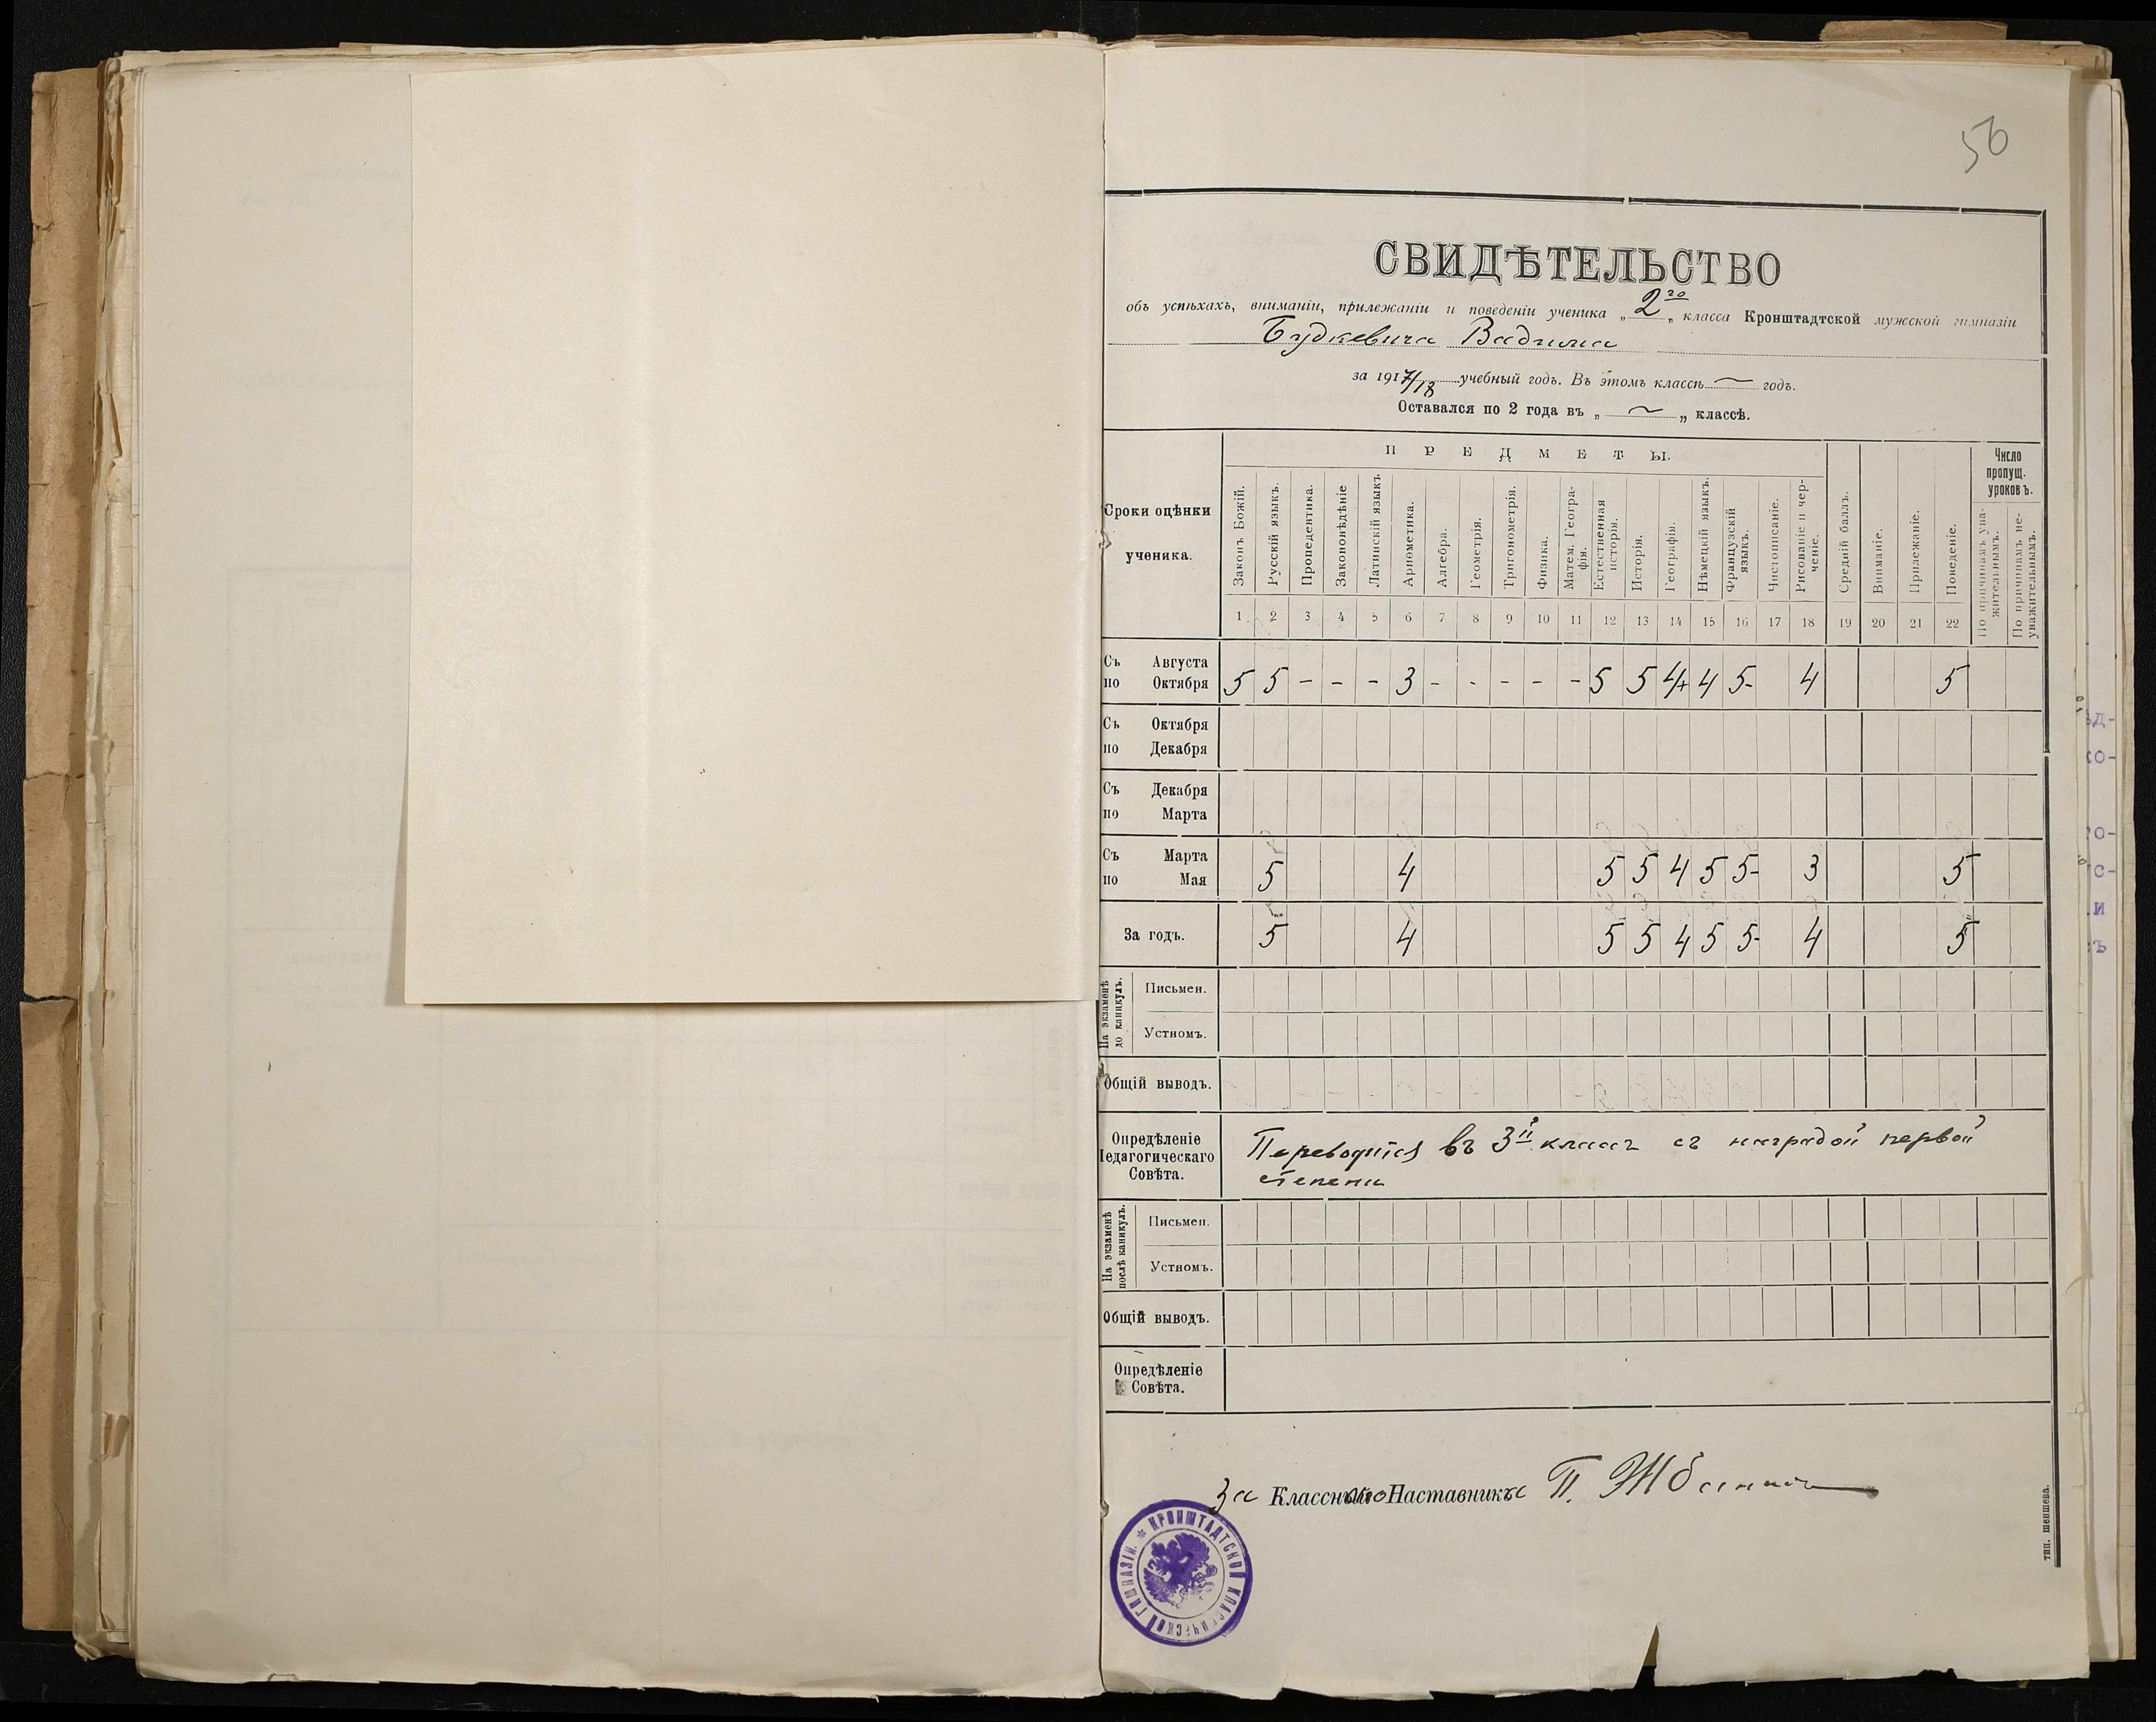 56
СВИДѢТЕЛЬСТВО
объ успѣхахъ, вниманіи, прилежаніи и поведеніи ученика „ 2го „ класса Кронштадтской мужской гимназіи
Будкевича Вадима
за 1917/18 учебный годъ. Въ этомъ классѣ ~ годъ.
Оставался по 2 года въ „ ~ „ классѣ.
Сроки оцѣнки ученика.
ПРЕДМЕТЫ.
Число пропущ. уроковъ.
Законъ Божій. Русскій языкъ. Пропедевтика. Законовѣдѣніе Латинскій языкъ Ариѳметика. Алгебра. Геометрія. Тригонометрія. Физика. Матем. Географія. Естественная исторія. Исторія. Географія. Нѣмецкій языкъ. Французскій языкъ. Чистописаніе. Рисованіе и черченіе. Средній баллъ. Вниманіе. Прилежаніе. Поведеніе. По причинамъ уважительнымъ. По причинамъ неуважительнымъ.
1 2 3 4 5 6 7 8 9 10 11 12 13 14 15 16 17 18 19 20 21 22
Съ Августа
по Октября 5 5 - - - 3 - - - - - 5 5 4+ 4 5- 4 5
Съ Октября
по Декабря
Съ Декабря
по Марта
Съ Марта
по Мая 5 4 5 5 4 5 5- 3 5
За годъ. 5 4 5 5 4 5 5- 4 5
На экзаменѣ до каникулъ.
Письмен.
Устномъ.
Общій выводъ.
Опредѣленіе
Педагогическаго
Совѣта.
Переводится въ 3й классъ съ наградой первой
степени
На экзаменѣ послѣ каникулъ.
Письмен.
Устномъ.
Общій выводъ.
Опредѣленіе
Совѣта.
За Класснаго Наставника П.
КРОНШТАДТСКОЙ КЛАССИЧЕСКОЙ ГИМНАЗІИ.
тип. шеншева.